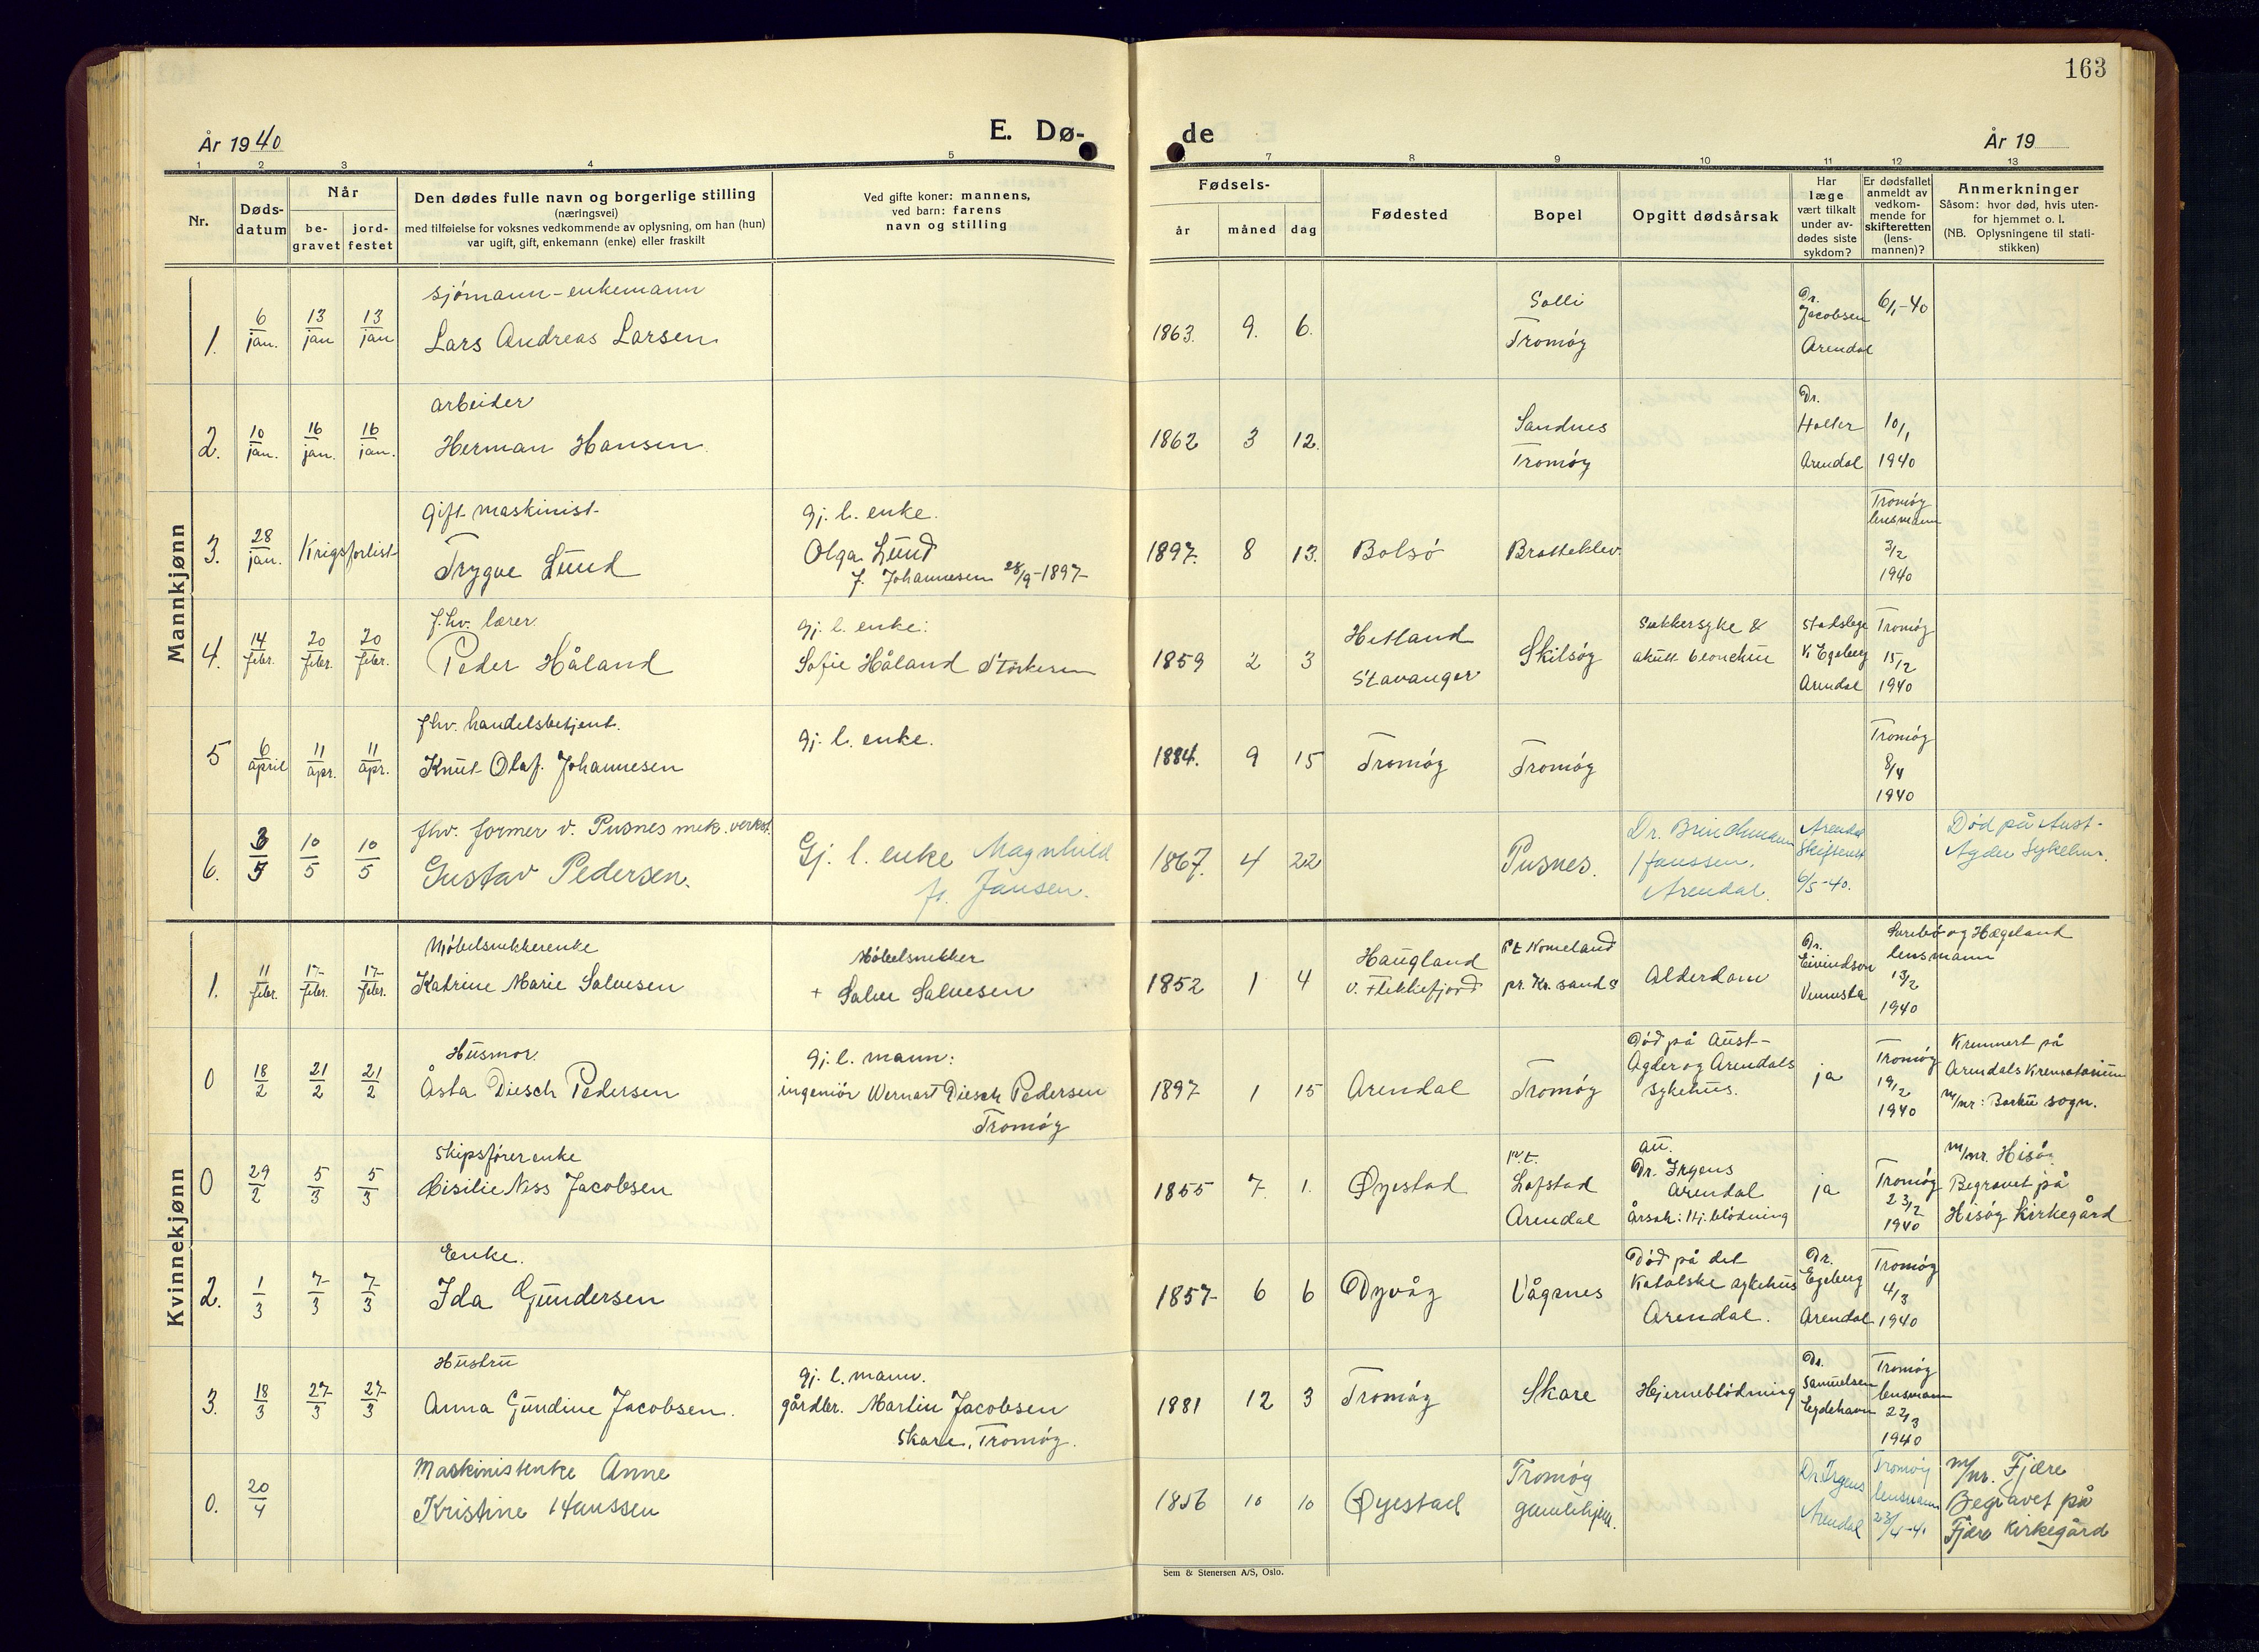 163
År 1940
E. Dø-
de
År 19
1 2 3 4 5
7 8 9 10 11 12 13
Nr.
Døds-
datum
Når
be-
gravet
jord-
festet
Den dødes fulle navn og borgerlige stilling
(næringsvei)
med tilføielse for voksnes vedkommende av oplysning, om han (hun)
var ugift, gift, enkemann (enke) eller fraskilt
Ved gifte koner: mannens,
ved barn: farens
navn og stilling
Fødsels-
år
måned
dag
Fødested
Bopel
Opgitt dødsårsak
Har
læge
vært tilkalt
under av-
dødes siste
sykdom?
Er dødsfallet
anmeldt av
vedkom-
mende for
skifteretten
(lens-
mannen)?
Anmerkninger
Såsom: hvor død, hvis uten-
for hjemmet o. l.
(NB. Oplysningene til stati-
stikken)
Mannkjønn
1. 6/jan. 13/jan 13/jan
sjømann - enkemann
Lars Andreas Larsen
1863. 9. 6.
Salli
Tromøy
Dr.
Jacobsen
Arendal
6/1-40
2. 10/jan. 16/jan. 16/jan.
arbeider
Herman Hansen
1862 3 12.
Sandnes
Tromøy
Dr.
Holter
Arendal
10/1
1940
3. 28/jan. Krigsforlist
Gift maskinist
Trygve Lund
gj. l. enke.
Olga Lund
f. Johannesen 28/9-1897
1897. 8 13. Bolsø
Bratteklev.
Tromøy
lensmann
3/2
1940
4. 14/febr. 20/febr. 20/febr.
f.hv. lærer
Peder Håland
gj. l. enke:
Sofie Håland Størkersen
1859 2 3
Hetland
Stavanger
Skilsøy
Sukkersyke &
akutt bronchitt
Stadslege
K Egeberg
Arendal
Tromøy
15/2
1940
5 6/april 11/apr. 11/apr.
fhv. handelsbetjent.
Knut Olaf. Johannesen
gj. l. enke.
1884. 9 15 Tromøy Tromøy
Tromøy
8/4
1940
6. 3/5 10/5 10/5
fhv. former v. Pusnes mek. verkst.
Gustav Pedersen.
Gj. l. enke Magnhild
f. Jansen.
1867. 4 22
Pusnes.
Dr. Brinchmann
Hanssen.
Arendal.
Arendal
Skifterett
6/5-40.
Død på Aust-
Agder Sykehus.
Kvinnekjønn
1. 11/febr. 17/febr. 17/febr.
Møbelsnekkerenke
Katrine Marie Salvesen
Møbelsnekker
+ Salve Salvesen
1852 1 4
Haugland
v. Flekkefjord
Pt Homeland
pr. Kr. sand S
Alderdom
Dr.
Eivindson
Vennesla
og Hægeland
lensmann
13/2
1940
0 18/2 21/2 21/2
Husmor.
Åsta Diesch Pedersen
gj. l. mann:
ingeniør Wernart Diesch Pedersen
Tromøy
1897 1 15 Arendal Tromøy
Død på Aust-
Agder og Arendals
sykehus.
ja
Tromøy
19/2
1940
Kremert på
Arendals Krematorium
m/nr: Barbu sogn.
0 29/2 5/3 5/3
Skipsførerenke
Cisilie Ness Jacobsen
1855 7 1. Øyestad
p.t.
Lofstad
Arendal
au.
Dr. Irgens
Arendal
Årsak: Hj. blødning
ja
Tromøy
23/2
1940
m/nr. Hisøy
Begravet på
Hisøy Kirkegård
2. 1/3 7/3 7/3
Enke.
Ida Gundersen
1857 6 6 Dyvåg Vågsnes
Død på det
Katolske sykehus
Arendal.
Dr.
Egeberg
Arendal
Tromøy
4/3
1940
3. 18/3 27/3 27/3
Hustru
Anna Gundine Jacobsen.
gj. l. mann.
gårdbr. Martin Jacobsen
Skare, Tromøy.
1881 12 3 Tromøy Skare Hjerneblødning
Dr.
Samuelsen
Eydehavn
Tromøy
lensmann
22/3
1940
0. 20/4
Maskinistenke Anne
Kristine Hanssen
1856 10 10 Øyestad
Tromøy
gamlehjem.
Dr. Irgens
Arendal
Tromøy
lensmann
23/4-40
m/nr. Fjære
Begravet på
Fjære Kirkegård
Sem & Stenersen A/S, Oslo.